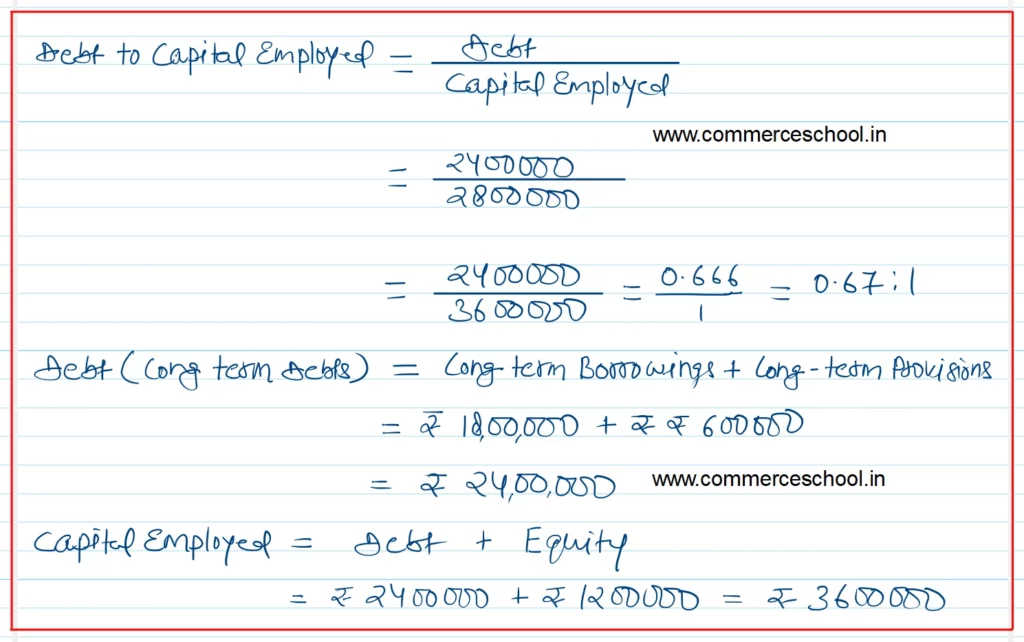 Debt to Capital Employed = Debt / Capital Employed
www.commerceschool.in
= 2400000 / 2800000
= 2400000 / 3600000 = 0.666 / 1 = 0.67:1
Debt (Long term Debts) = Long-term Borrowings + Long-term Provisions
= ₹ 18,00,000 + ₹ ₹ 600000
= ₹ 24,00,000
www.commerceschool.in
Capital Employed = Debt + Equity
= ₹ 2400000 + ₹ 1200000 = ₹ 3600000